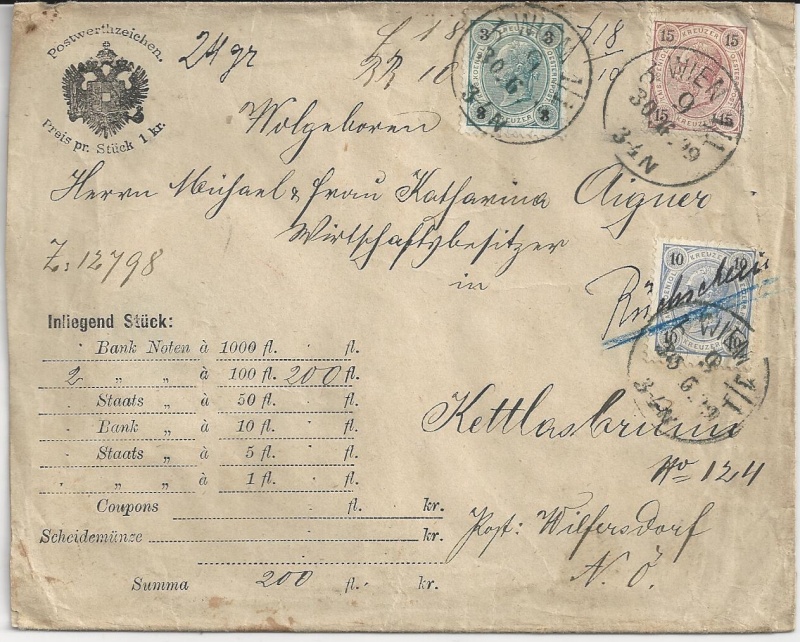 Postwerthzeichen.
Preis pr. Stück 1 kr.
24 gr
18
10
3 KREUZER 3
3 KREUZER 3
15 KREUZER 15
15 15
10 KREUZER 10
WIEN
30.6
3-4N
WIEN
9
3-4N
WIEN
9
3-4N
Wolgeboren
Herrn Michael & Frau Katharina Aigner
Wirtschaftsbesitzer
in
Rückschein
Z: 12798
Inliegend Stück:
Bank Noten à 1000 fl. fl.
2 „ „ à 100 fl. 200 fl.
Staats „ à 50 fl. fl.
Bank „ à 10 fl. fl.
Staats „ à 5 fl. fl.
„ „ à 1 fl. fl.
Coupons fl. kr.
Scheidemünze „ kr.
Summa 200 fl. kr.
Kettlasbrunn
No 124
Post: Wilfersdorf
N. Ö.